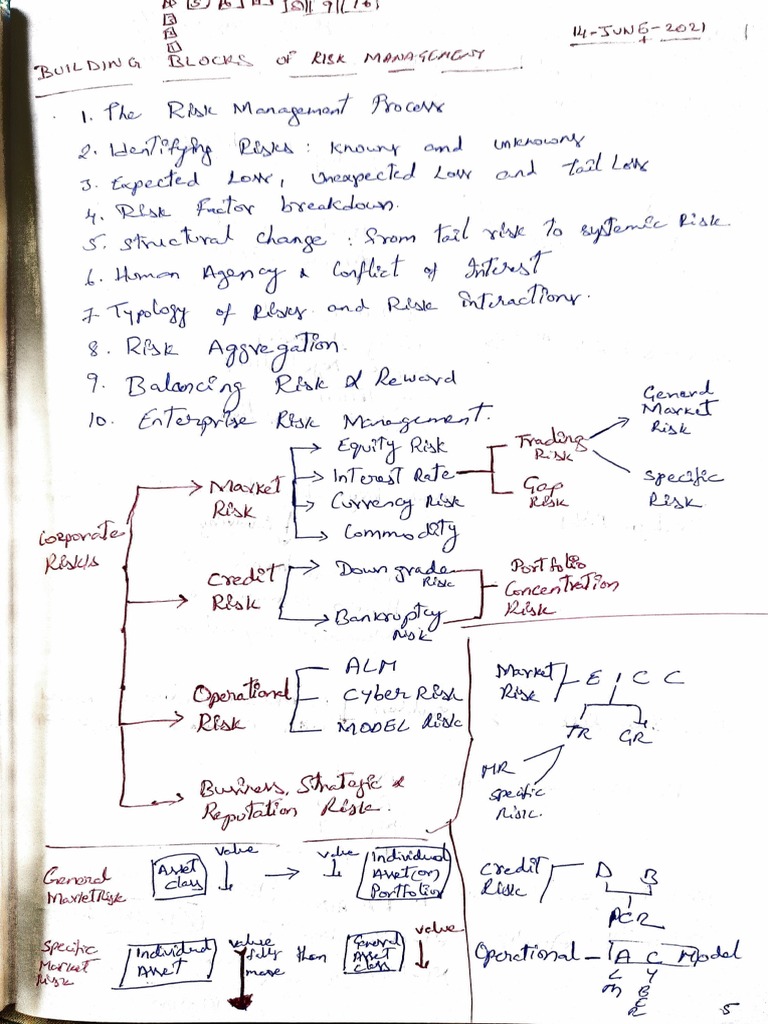 14-JUNE-2021
BUILDING BLOCKS OF RISK MANAGEMENT
1. The Risk Management Process
2. Identifying Risks: knowns and unknowns
3. Expected Loss, Unexpected Loss and tail Loss
4. Risk Factor breakdown.
5. Structural change: from tail risk to systemic Risk.
6. Human Agency & Conflict of Interest
7. Typology of Risks and Risk interactions.
8. Risk Aggregation.
9. Balancing Risk & Reward
10. Enterprise Risk Management.
Corporate
Risks
Market
Risk
Equity Risk
Interest Rate
Currency Risk
Commodity
Trading
Risk
Gap
Risk
General
Market
Risk
Specific
Risk
Credit
Risk
Down grade
Risk
Bankruptcy
Risk
Portfolio
Concentration
Risk
Operational
Risk
ALM
Cyber Risk
MODEL Risk
Business, Strategic &
Reputation Risk.
Market
Risk
E I C C
TR GR
MR
Specific
Risk.
Credit
Risk
D B
PCR
Operational
A C Model
L Y
M B
E
R
General
Market Risk
Asset
class
value
value
Individual
Asset (or)
Portfolio
Specific
Market
Risk
Individual
Asset
value
falls
more
than
General
Asset
class
value
5